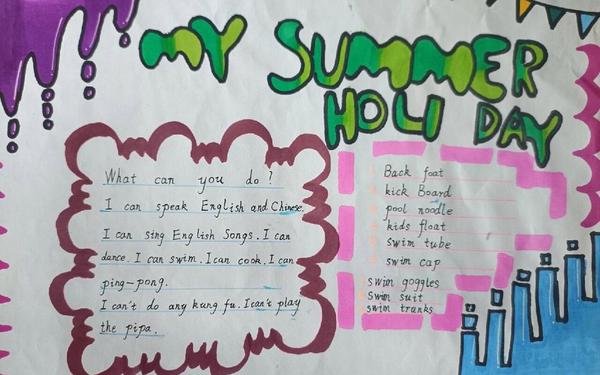 MY SUMMER
HOLI DAY
What can you do?
I can speak English and Chinese.
I can sing English Songs. I can
dance. I can swim. I can cook. I can
ping-pong.
I can't do any kung fu. I can't play
the pipa.
Back foat
kick Board
pool noodle
kids float
swim tube
swim cap
swim goggles
swim suit
swim trunks